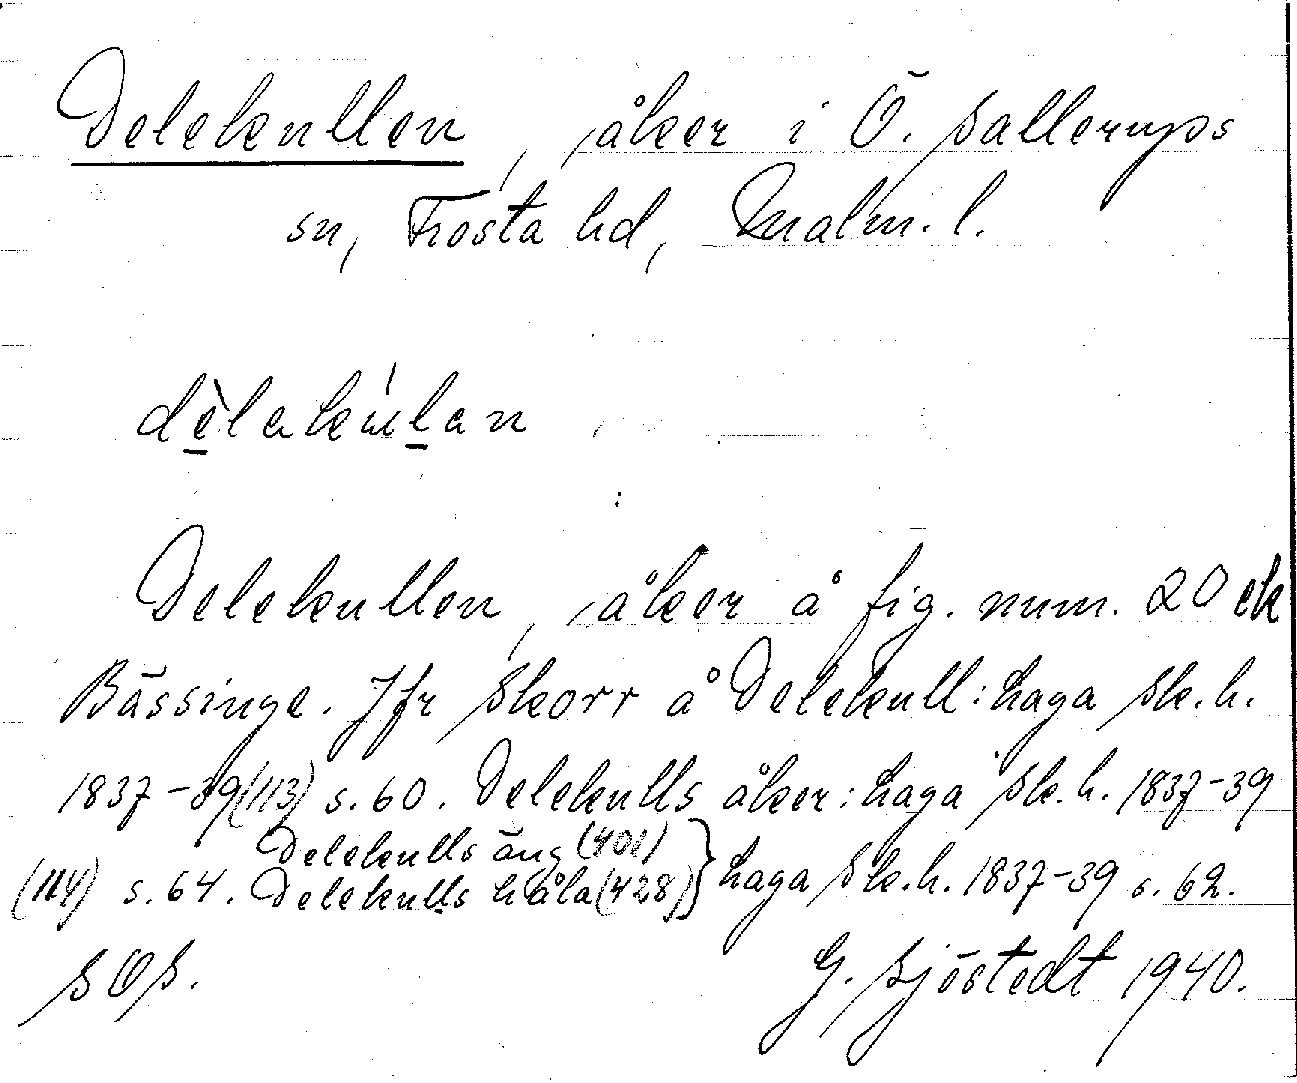 Delekullen, åker i Ö. Sallerups
sn, Frosta hd, Malm. l.
dèlakúlan
Delekullen, åker å fig. num. 20 ek
Bässinge. Jfr Skorr å Delekull: haga Sk.h.
1837-39 (113) s. 60. Delekulls åker: haga Sk.h. 1837-39
Delekulls äng (401)
(114) s. 64. Delekulls håla (428) } haga Sk.h. 1837-39 s. 62.
SOS. G. Sjöstedt 1940.